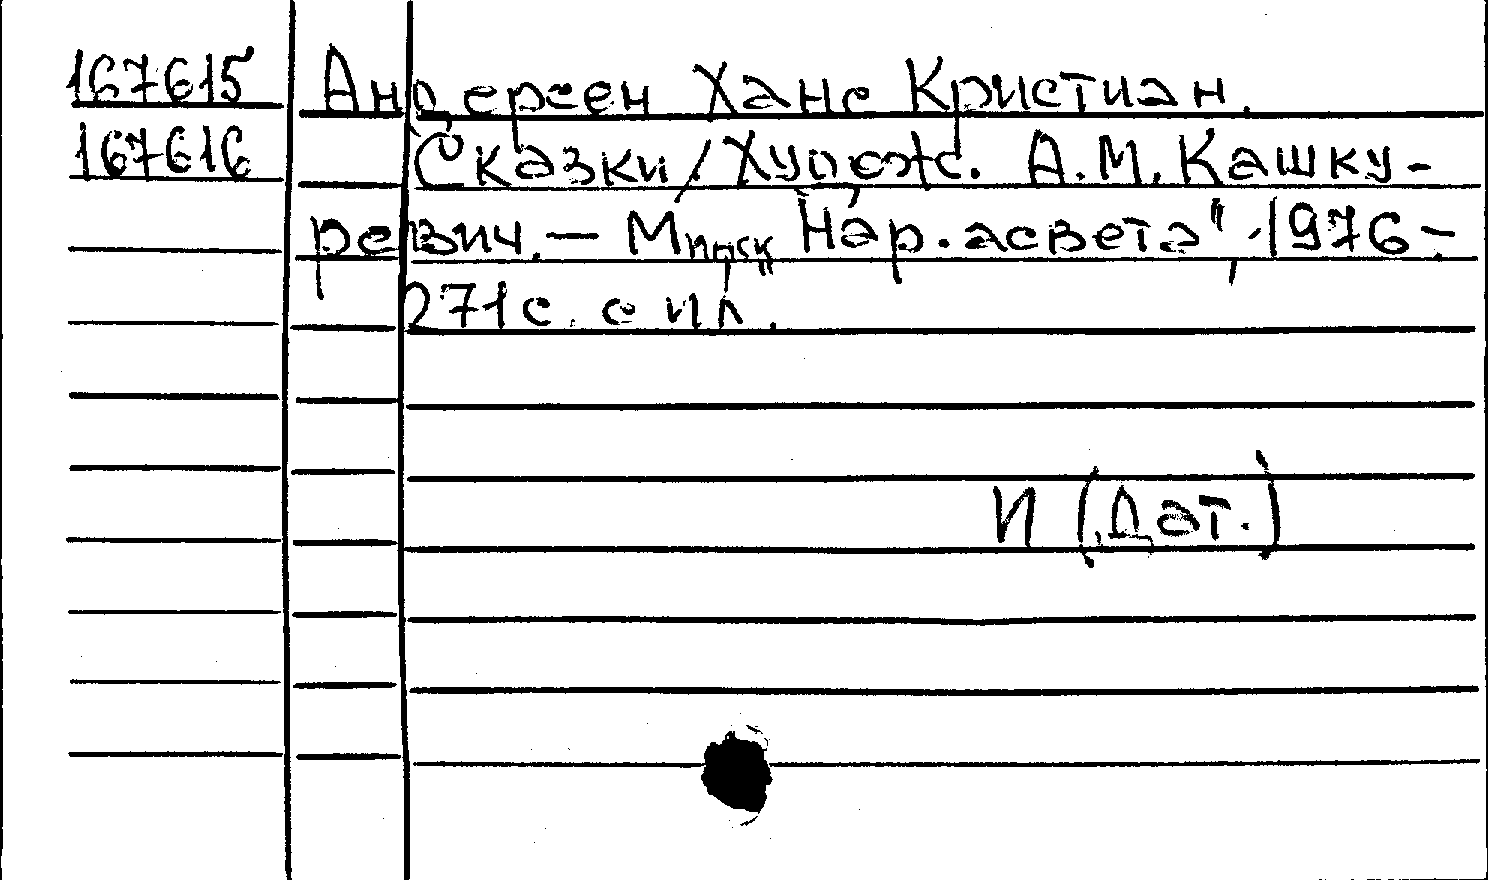 167615 Андерсен Ханс Кристиан.
167616 Сказки / Худож. А.М. Кашку-
ревич. — Минск „Нар. асвета", 1976 -
271 с. с ил.
И (Дат.)